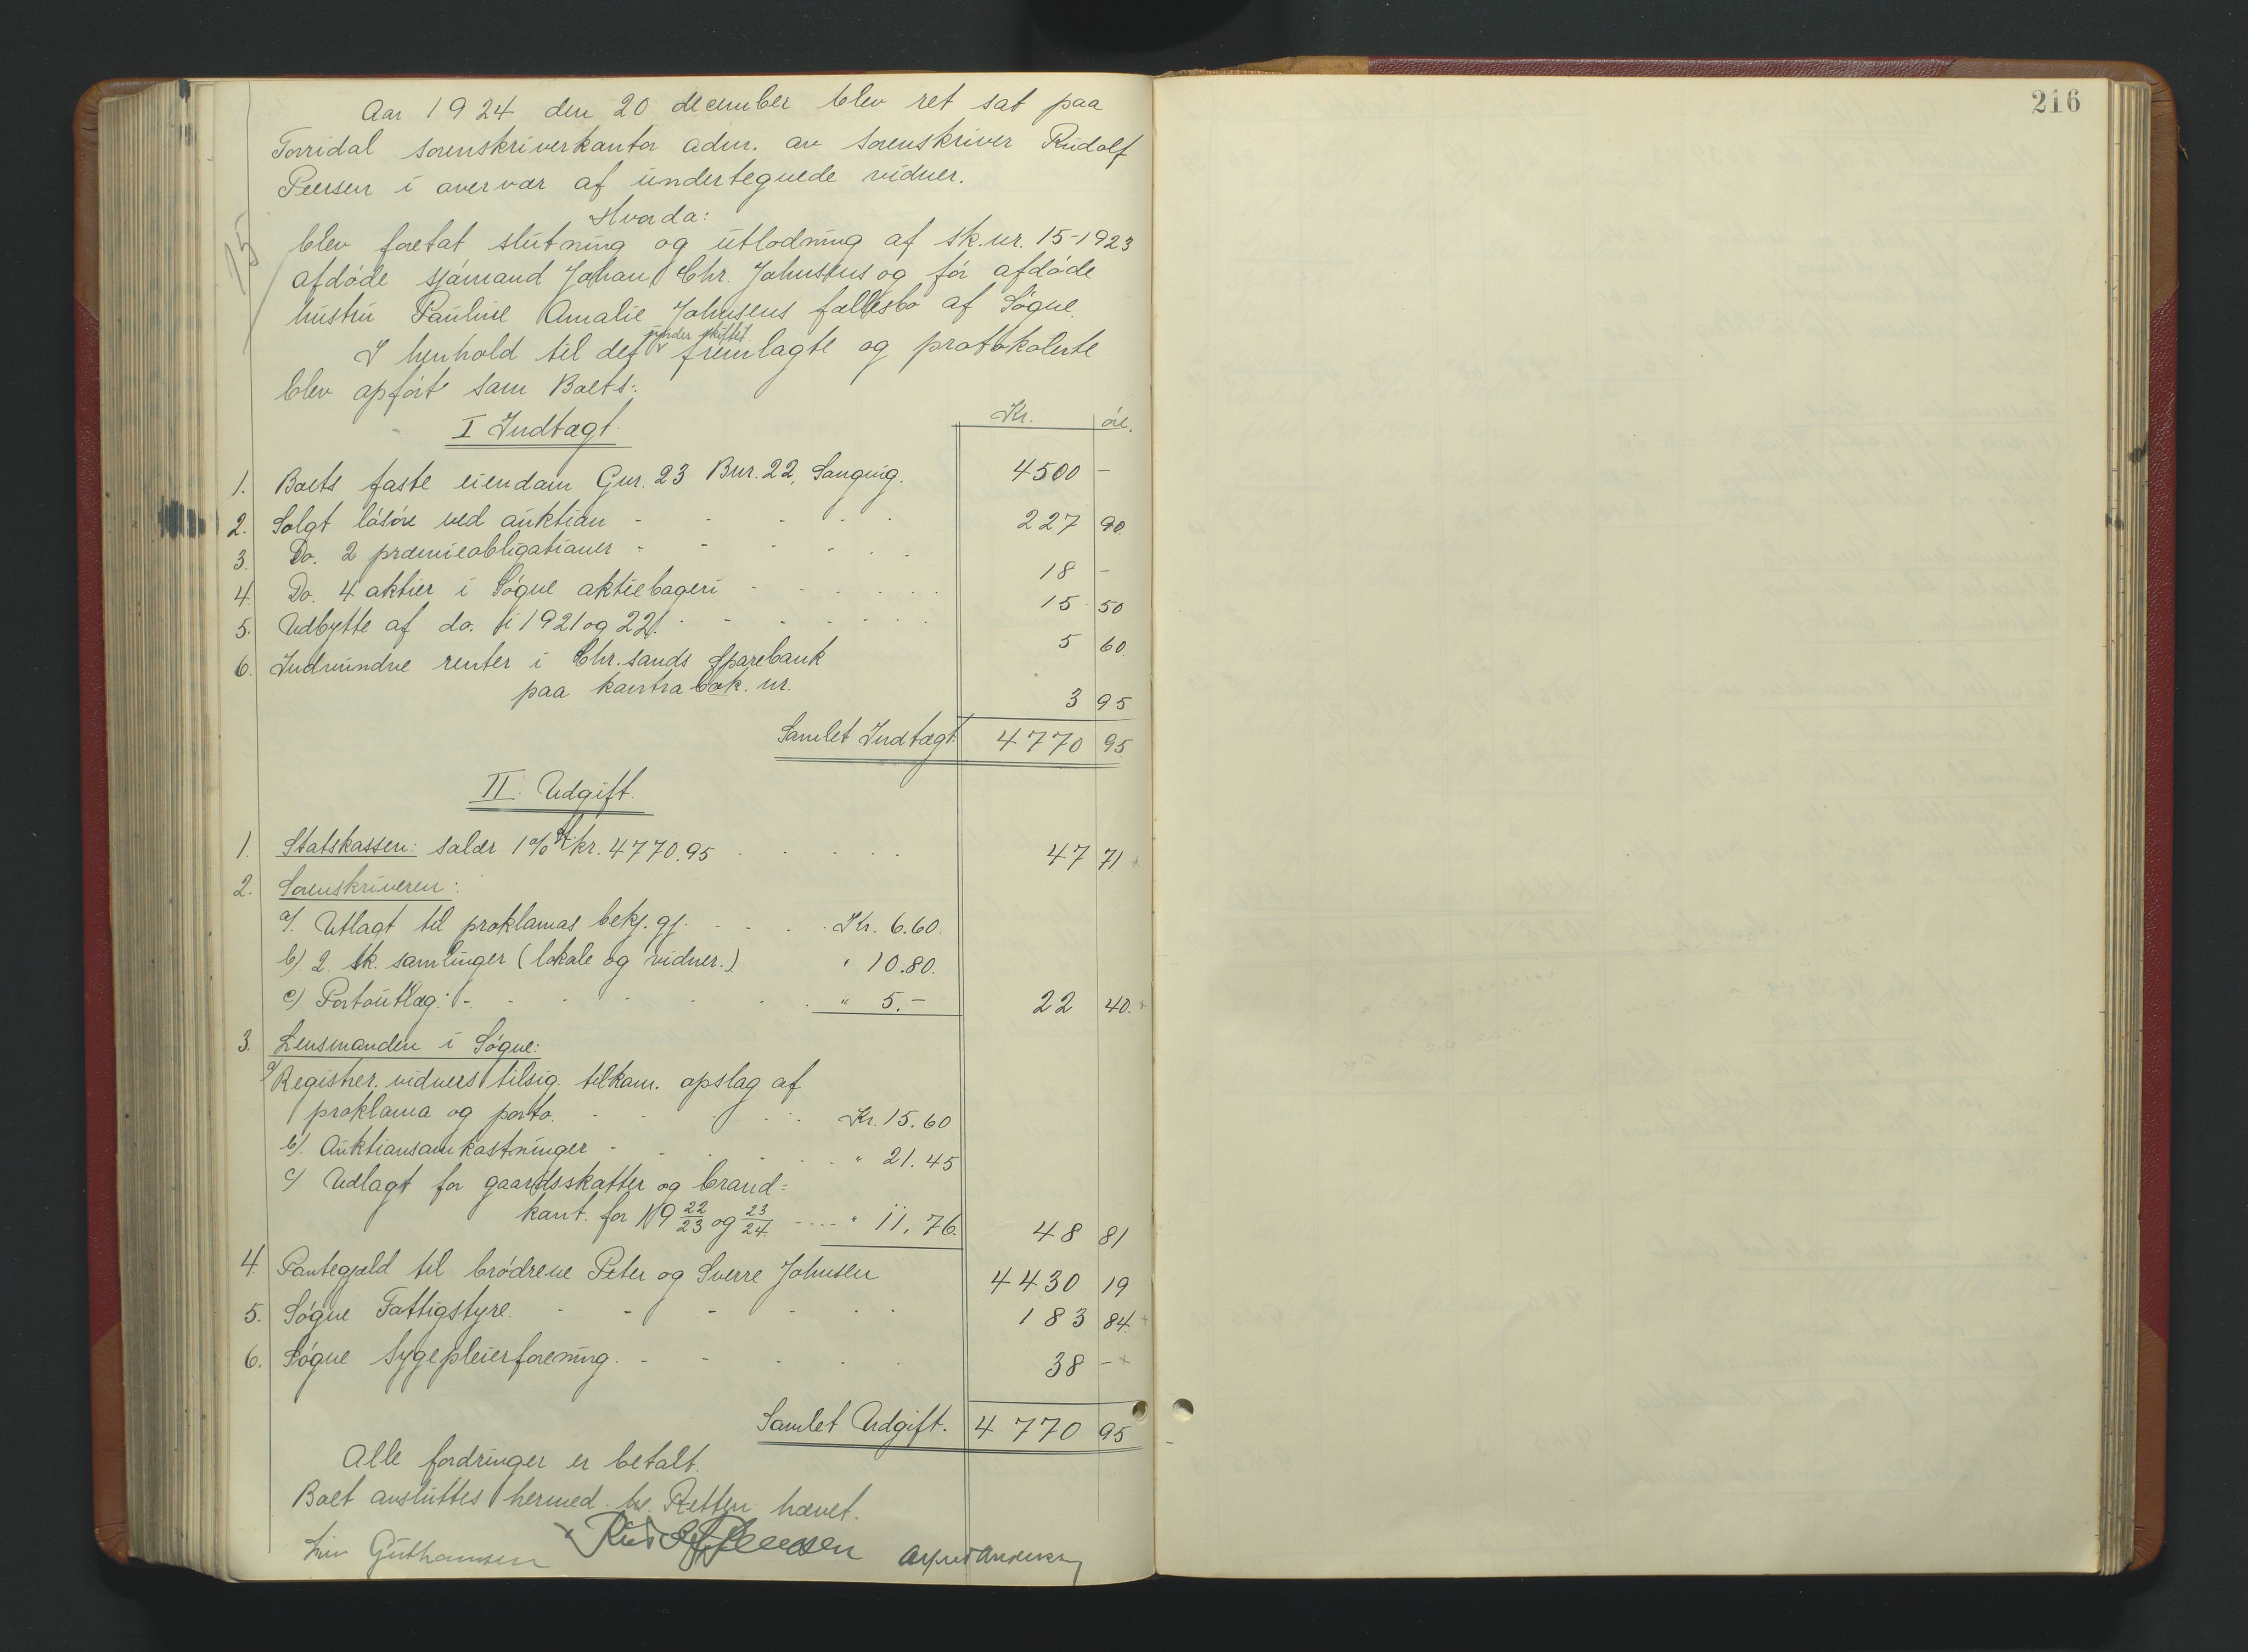 Aar 1924 den 20 december blev ret sat paa
Torridal sorenskriverkontor adm. av sorenskriver Rudolf
Peersen i overvær af undertegnede vidner.
Hvorda:
15
blev foretat slutning og utlodning af sk.nr. 15-1923
afdøde sjømand Johan Chr. Johnsens og før afdøde
hustru Pauline Amalie Johnsens fællesbo af Søgne.
I henhold til det under skiftet fremlagte og protokolerte
blev opført som Boets:
I Indtægt. Kr. øre.
1. Boets faste eiendom Gnr. 23 Bnr. 22, 4500 -
2. Solgt løsøre ved auktion - - - - - 227 90.
3. Do. 2 præmieobligationer - - - - - 18 -
4. Do. 4 aktier i Søgne aktiebageri - - - - 15 50
5. Udbytte af do. i 1921 og 22. - - - - - 5 60.
6. Indvundne renter i Chr.sands Sparebank
paa kontrabok. nr. 3 95
Samlet Indtægt. 4770 95.
II. Udgift.
1. Statskassen: salær 1% af kr. 4770.95 - - - - 47 71
2. Sorenskriveren:
a/. Utlagt til proklamas bekj.gj. - - - Kr. 6.60.
b/. 2 sk. samlinger (lokale og vidner.) " 10.80.
c/ Portoutlæg: - - - - - " 5.- 22 40.
3. Lensmanden i Søgne:
a/ Registrer. vidners tilsig. tilkom. opslag af
proklama og porto. - - - Kr. 15.60
b/. Auktionsomkostninger - - - - " 21.45
c/ Udlagt for gaardsskatter og brand=
kont. for 19 22/23 og 23/24. - - - " 11.76. 48 81
4. Pantegjæld til brødrene Peter og Sverre Johnsen 4430 19
5. Søgne Fattigstyre. - - - - - 183 84.
6. Søgne Sygepleierforening. - - - - 38 -
Samlet Udgift. 4770 95
Alle fordringer er betalt.
Boet avsluttes hermed. Retten hævet.
Rudolf Peersen
Alfred Andersen
216